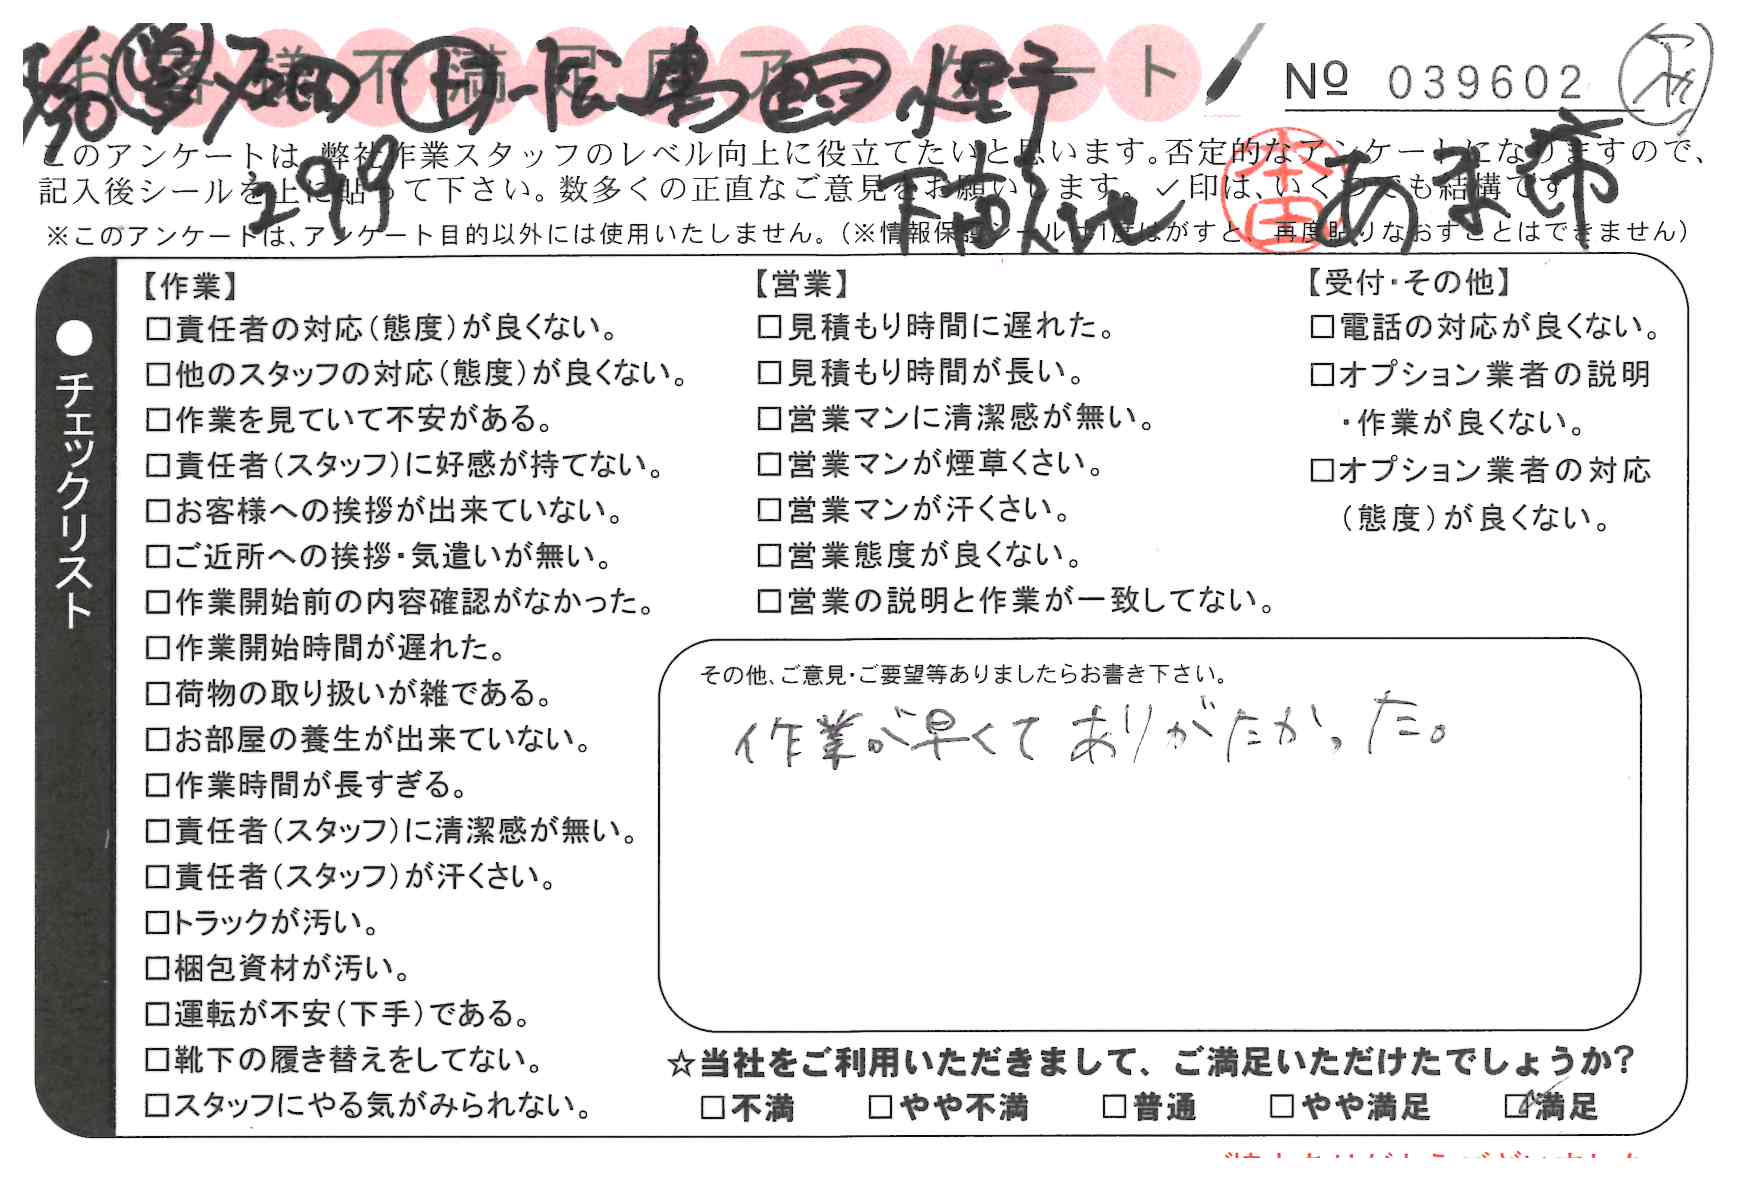 お客様不満足度アンケート
№ 039602
このアンケートは、弊社作業スタッフのレベル向上に役立てたいと思います。否定的なアンケートになりますので、
記入後シールを上に貼って下さい。数多くの正直なご意見をお願いします。✓印は、いくつでも結構です。
299
本田
あま市
※このアンケートは、アンケート目的以外には使用いたしません。(※情報保護シールは1度はがすと、再度貼りなおすことはできません)
●チェックリスト
【作業】
□責任者の対応(態度)が良くない。
□他のスタッフの対応(態度)が良くない。
□作業を見ていて不安がある。
□責任者(スタッフ)に好感が持てない。
□お客様への挨拶が出来ていない。
□ご近所への挨拶・気遣いが無い。
□作業開始前の内容確認がなかった。
□作業開始時間が遅れた。
□荷物の取り扱いが雑である。
□お部屋の養生が出来ていない。
□作業時間が長すぎる。
□責任者(スタッフ)に清潔感が無い。
□責任者(スタッフ)が汗くさい。
□トラックが汚い。
□梱包資材が汚い。
□運転が不安(下手)である。
□靴下の履き替えをしてない。
□スタッフにやる気がみられない。
【営業】
□見積もり時間に遅れた。
□見積もり時間が長い。
□営業マンに清潔感が無い。
□営業マンが煙草くさい。
□営業マンが汗くさい。
□営業態度が良くない。
□営業の説明と作業が一致してない。
【受付・その他】
□電話の対応が良くない。
□オプション業者の説明
・作業が良くない。
□オプション業者の対応
(態度)が良くない。
その他、ご意見・ご要望等ありましたらお書き下さい。
作業が早くてありがたかった。
☆当社をご利用いただきまして、ご満足いただけたでしょうか?
□不満 □やや不満 □普通 □やや満足 ☑満足